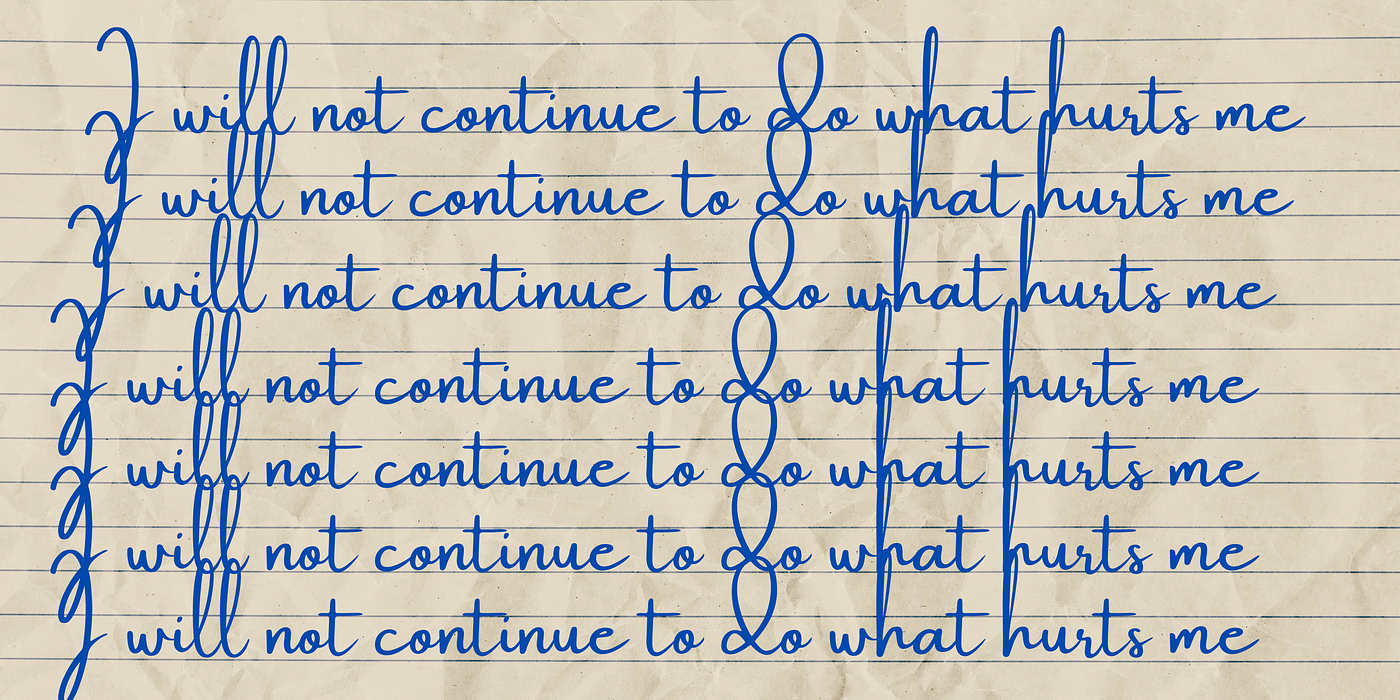 I will not continue to do what hurts me
I will not continue to do what hurts me
I will not continue to do what hurts me
I will not continue to do what hurts me
I will not continue to do what hurts me
I will not continue to do what hurts me
I will not continue to do what hurts me